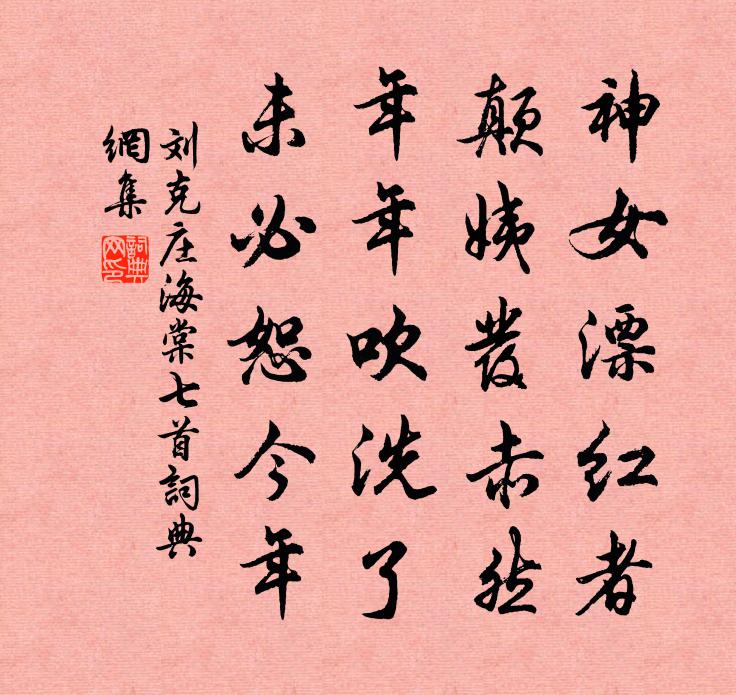 神女漂红者
颠姨發赤然
年年吹洗了
未必恕今年
刘克庄海棠七首詞典
網集
詞典
网印